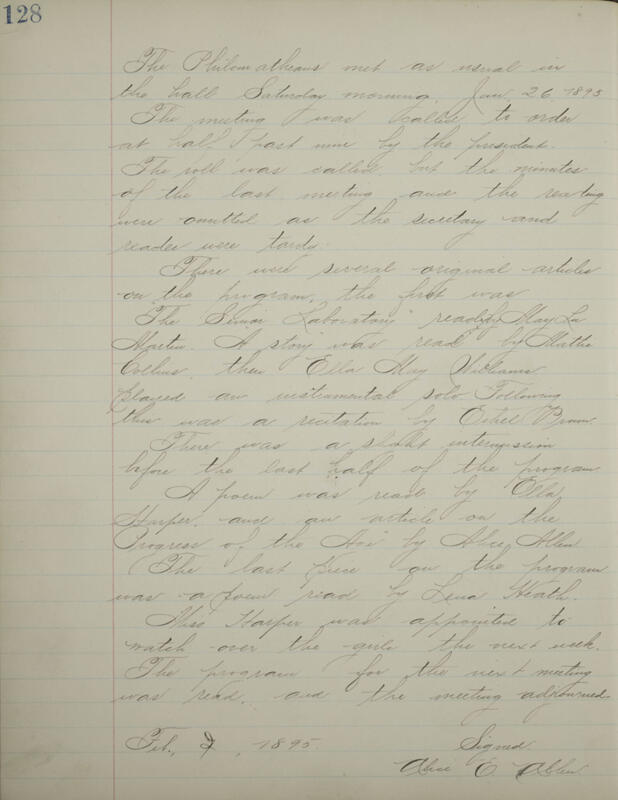 128
The Philomatheans met as usual in
the hall Saturday morning, Jan 26, 1895
The meeting was called to order
at half past nine by the president.
The roll was called, but the minutes
of the last meeting and the reading
were omitted as the secretary and
reader were tardy.
There were several original articles
on the program, the first was
"The Senior Laboratory" read by May La
Martin. A story was read by
Collins, then Ella May Williams
played an instrumental solo. Following
this was a recitation by Ethel Brown.
There was a slight intermission
before the last half of the program
A poem was read by Ella
Harper, and an article on the
Progress of the by Alice Allen
The last piece on the program
was a poem read by Lena Heath.
Miss Harper was appointed to
watch over the girls the next week.
The program for the next meeting
was read, and the meeting adjourned.
Feb., 2, 1895. Signed
Alice E. Allen